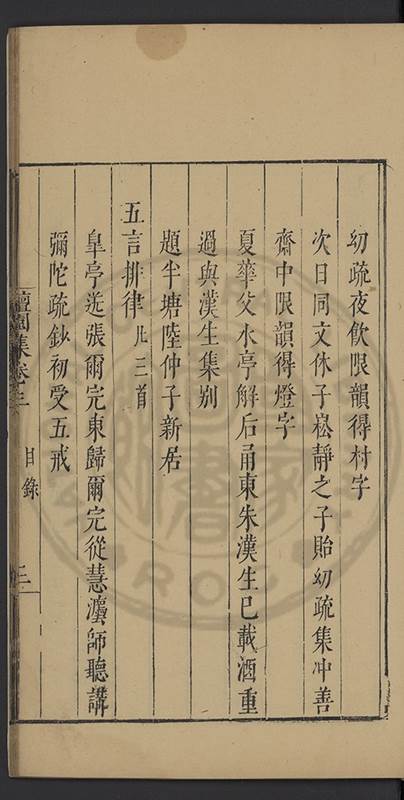 幼疏夜飲限韻得村字
次日同文休子崧靜之子貽幼疏集冲善
齋中限韻得燈字
夏華父水亭解后甬東朱漢生已載酒重
過與漢生集别
題半塘陸仲子新居
五言排律凡三首
皐亭送張爾完東歸爾完從慧灋師聽講
彌陀疏鈔初受五戒
集卷三
目錄
三